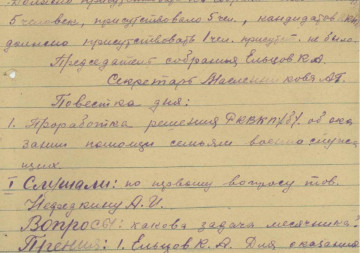 5 человек, присутствовало 5 чел., кандидатов
должно присутствовать 1 чел. присут. не было.
Председатель собрания Ельцов К.А.
Секретарь Масленникова А.Г.
Повестка дня:
1. Проработка решения РКВКП/б/ об ока
зании помощи семьям военнослужа
щих.
I Слушали: по первому вопросу тов.
А.И.
Вопросы: какова задача месячника?
Прения: 1. Ельцов К. А. Для оказания